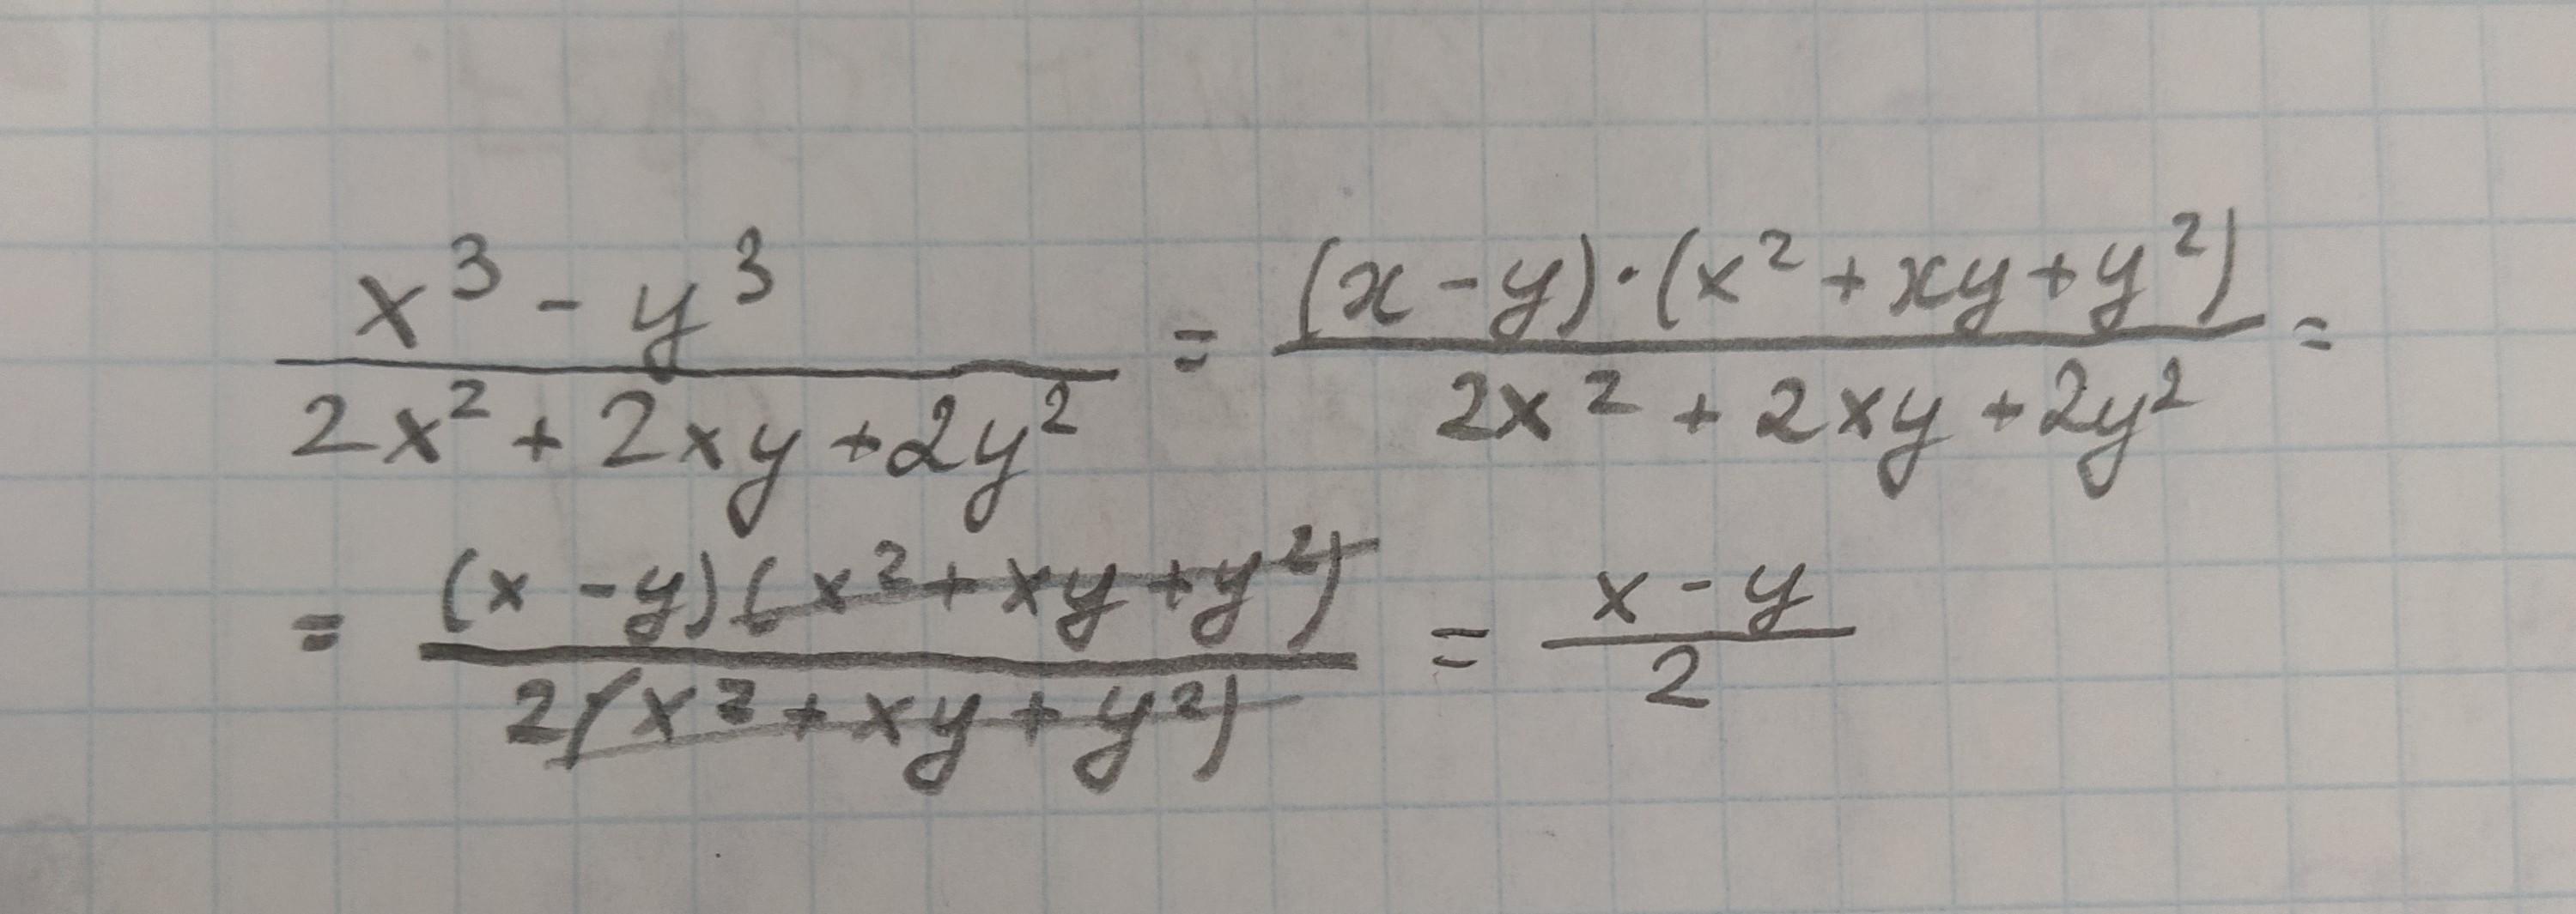 \frac{x^3 - y^3}{2x^2 + 2xy + 2y^2} = \frac{(x - y) \cdot (x^2 + xy + y^2)}{2x^2 + 2xy + 2y^2} =
= \frac{(x - y)(x^2 + xy + y^2)}{2(x^2 + xy + y^2)} = \frac{x - y}{2}